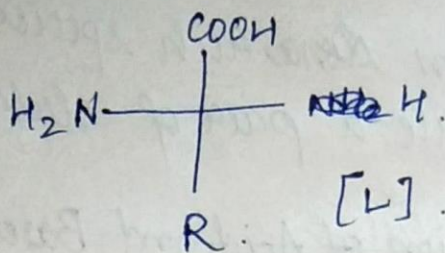 COOH
H₂N H.
R.
[L].